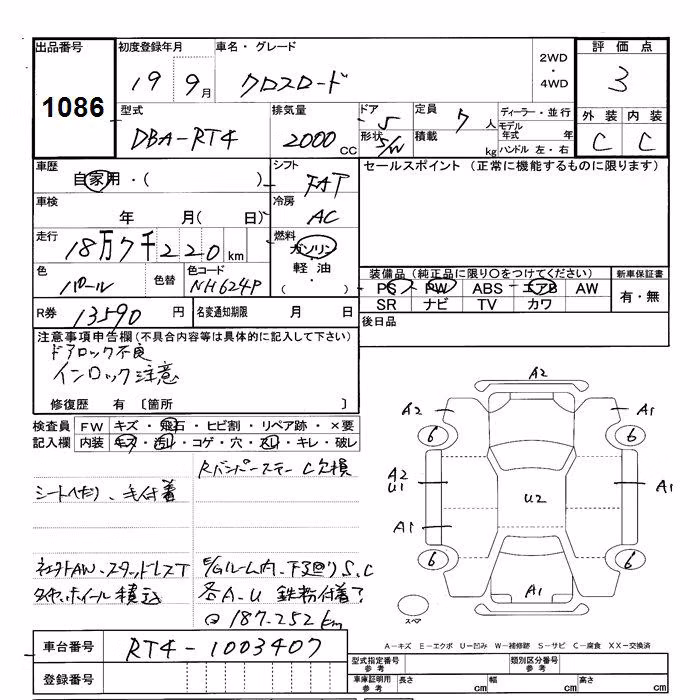 出品番号 初度登録年月 車名・グレード 評価点
1086 19 9月 クロスロード 2WD・4WD 3
型式 排気量 ドア 5 定員 7人 ディーラー・並行 外装 内装
DBA-RT4 2000cc 形状 S/W 積載 kg モデル年式 年 C C
ハンドル 左・右
車歴 自家用・( ) シフト FAT セールスポイント (正常に機能するものに限ります)
車検 年 月( 日) 冷房 AC
走行 18万7千220km 燃料 ガソリン
軽油・( )
色 パール 色替 色コード NH624P
装備品(純正品に限り○をつけてください) 新車保証書
PS PW ABS エアB AW 有・無
SR ナビ TV カワ
R券 13590円 名変通知期限 月 日 後日品
注意事項申告欄(不具合内容等は具体的に記入して下さい)
ドアロック不良
インロック注意
修復歴 有 〔箇所 〕
検査員 FW キズ・飛石・ヒビ割・リペア跡・×要
記入欄 内装 キズ・汚レ・コゲ・穴・スレ・キレ・破レ
Rバンパーステー 欠損
シートへたり、毛付着
スタッドレスT
E/Gルーム内、下廻りS.C
タイヤ、ホイール積込
各A.U 鉄粉付着
187.252km
A2
A2 A1
6 6
A2
U1 U2 A1
A1
6 6
A1
スペア
A-キズ E-エクボ U-凹み W-補修跡 S-サビ C-腐食 XX-交換済
車台番号 RT4-1003407
型式指定番号 参考 類別区分番号 参考
登録番号
車庫証明用 参考 長さ cm 幅 cm 高さ cm